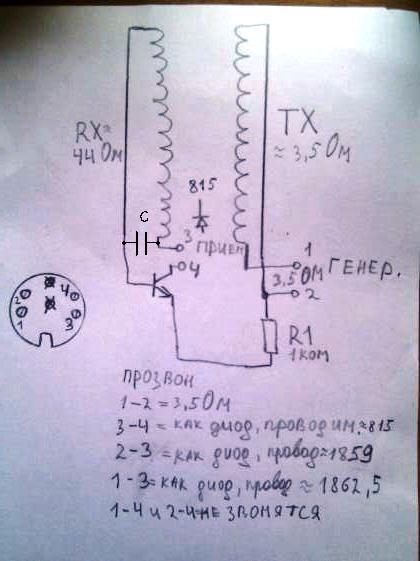 RX≈
44 Ом
TX
≈ 3,5 Ом
815
C
3
ПРИЕМ
4
1
ГЕНЕР.
3,5 ОМ
2
R1
1КОМ
2
4
1
3
ПРОЗВОН
1-2 = 3,5 Ом
3-4 = КАК ДИОД, ПРОВОДИМ.≈815
2-3 = КАК ДИОД, ПРОВОД≈1859
1-3 = КАК ДИОД, ПРОВОД ≈ 1862,5
1-4 и 2-4-НЕ ЗВОНЯТСЯ